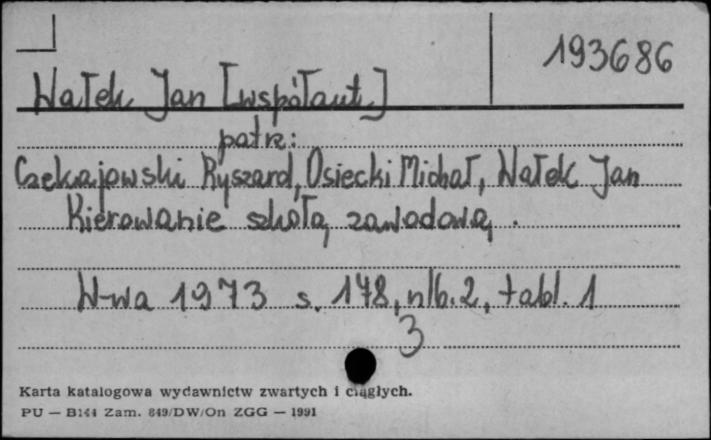 193686
Wałek Jan [współaut.]
patrz:
Czekajowski Ryszard, Osiecki Michał, Wałek Jan
Kierowanie szkołą zawodową.
W-wa 1973 s. 178, nlb. 2, tabl. 1
3
Karta katalogowa wydawnictw zwartych i ciągłych.
PU — B144 Zam. 849/DW/On ZGG — 1991